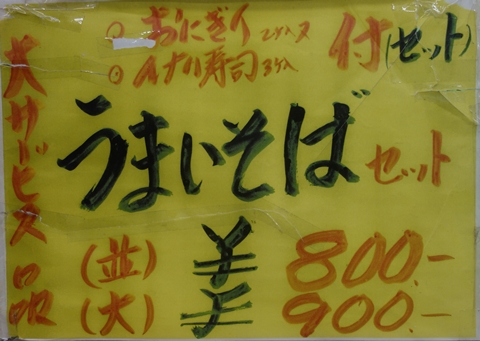 大サービス品
○おにぎり2ケ入
○イナリ寿司3ケ入
付(セット)
うまいそばセット
(並)¥800.-
(大)¥900.-